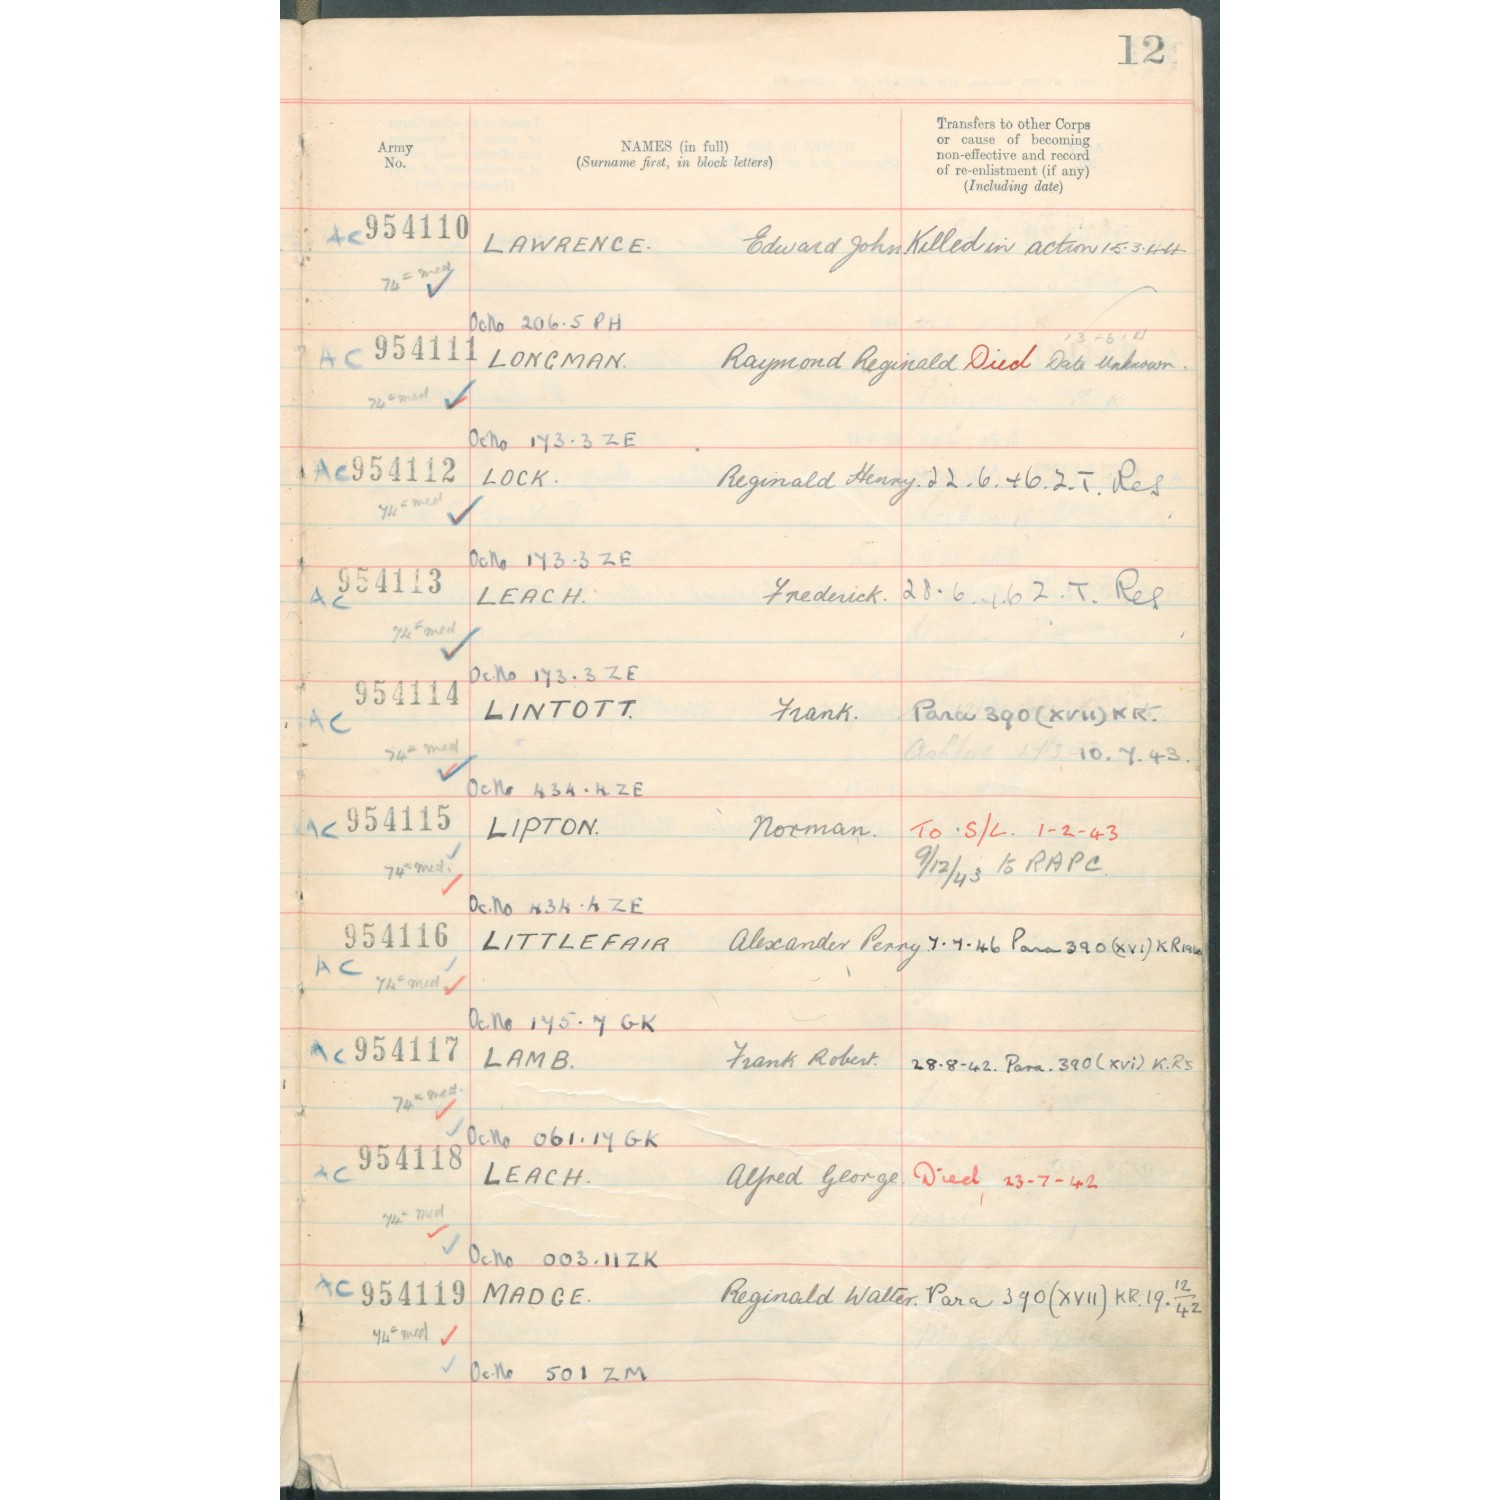 12
Army
No.
NAMES (in full)
(Surname first, in block letters)
Transfers to other Corps
or cause of becoming
non-effective and record
of re-enlistment (if any)
(Including date)
AC 954110 LAWRENCE. Edward John Killed in action 15.3.44
74 med
Oc.No 206.5 PH
13-6-
AC 954111 LONGMAN. Raymond Reginald Died Date Unknown.
74 med
Oc.No 173.3 ZE
AC 954112 LOCK. Reginald Henry. 22.6.46. Z.T. Res
74 med
Oc.No 173.3 ZE
AC 954113 LEACH. Frederick. 28.6.46 Z.T. Res
74 med
Oc.No 173.3 ZE
AC 954114 LINTOTT. Frank. Para 390 (XVII) KR.
74 med 10.7.43.
Oc.No 434.4 ZE
AC 954115 LIPTON. Norman. To S/L. 1-2-43
74 med. 9/12/43 to RAPC.
Oc.No 434.4 ZE
954116 LITTLEFAIR Alexander Perry 7.7.46 Para 390 (XVI) KR 1940
AC
74 med
Oc.No 175.7 GK
AC 954117 LAMB. Frank Robert. 28-8-42. Para. 390 (XVI) K.Rs
74 med.
Oc.No 061.17 GK
AC 954118 LEACH. Alfred George. Died, 23-7-42
74 med
Oc.No 003.11 ZK
AC 954119 MADGE. Reginald Walter. Para 390 (XVII) KR. 19.12/42
74 med
Oc.No 501 ZM